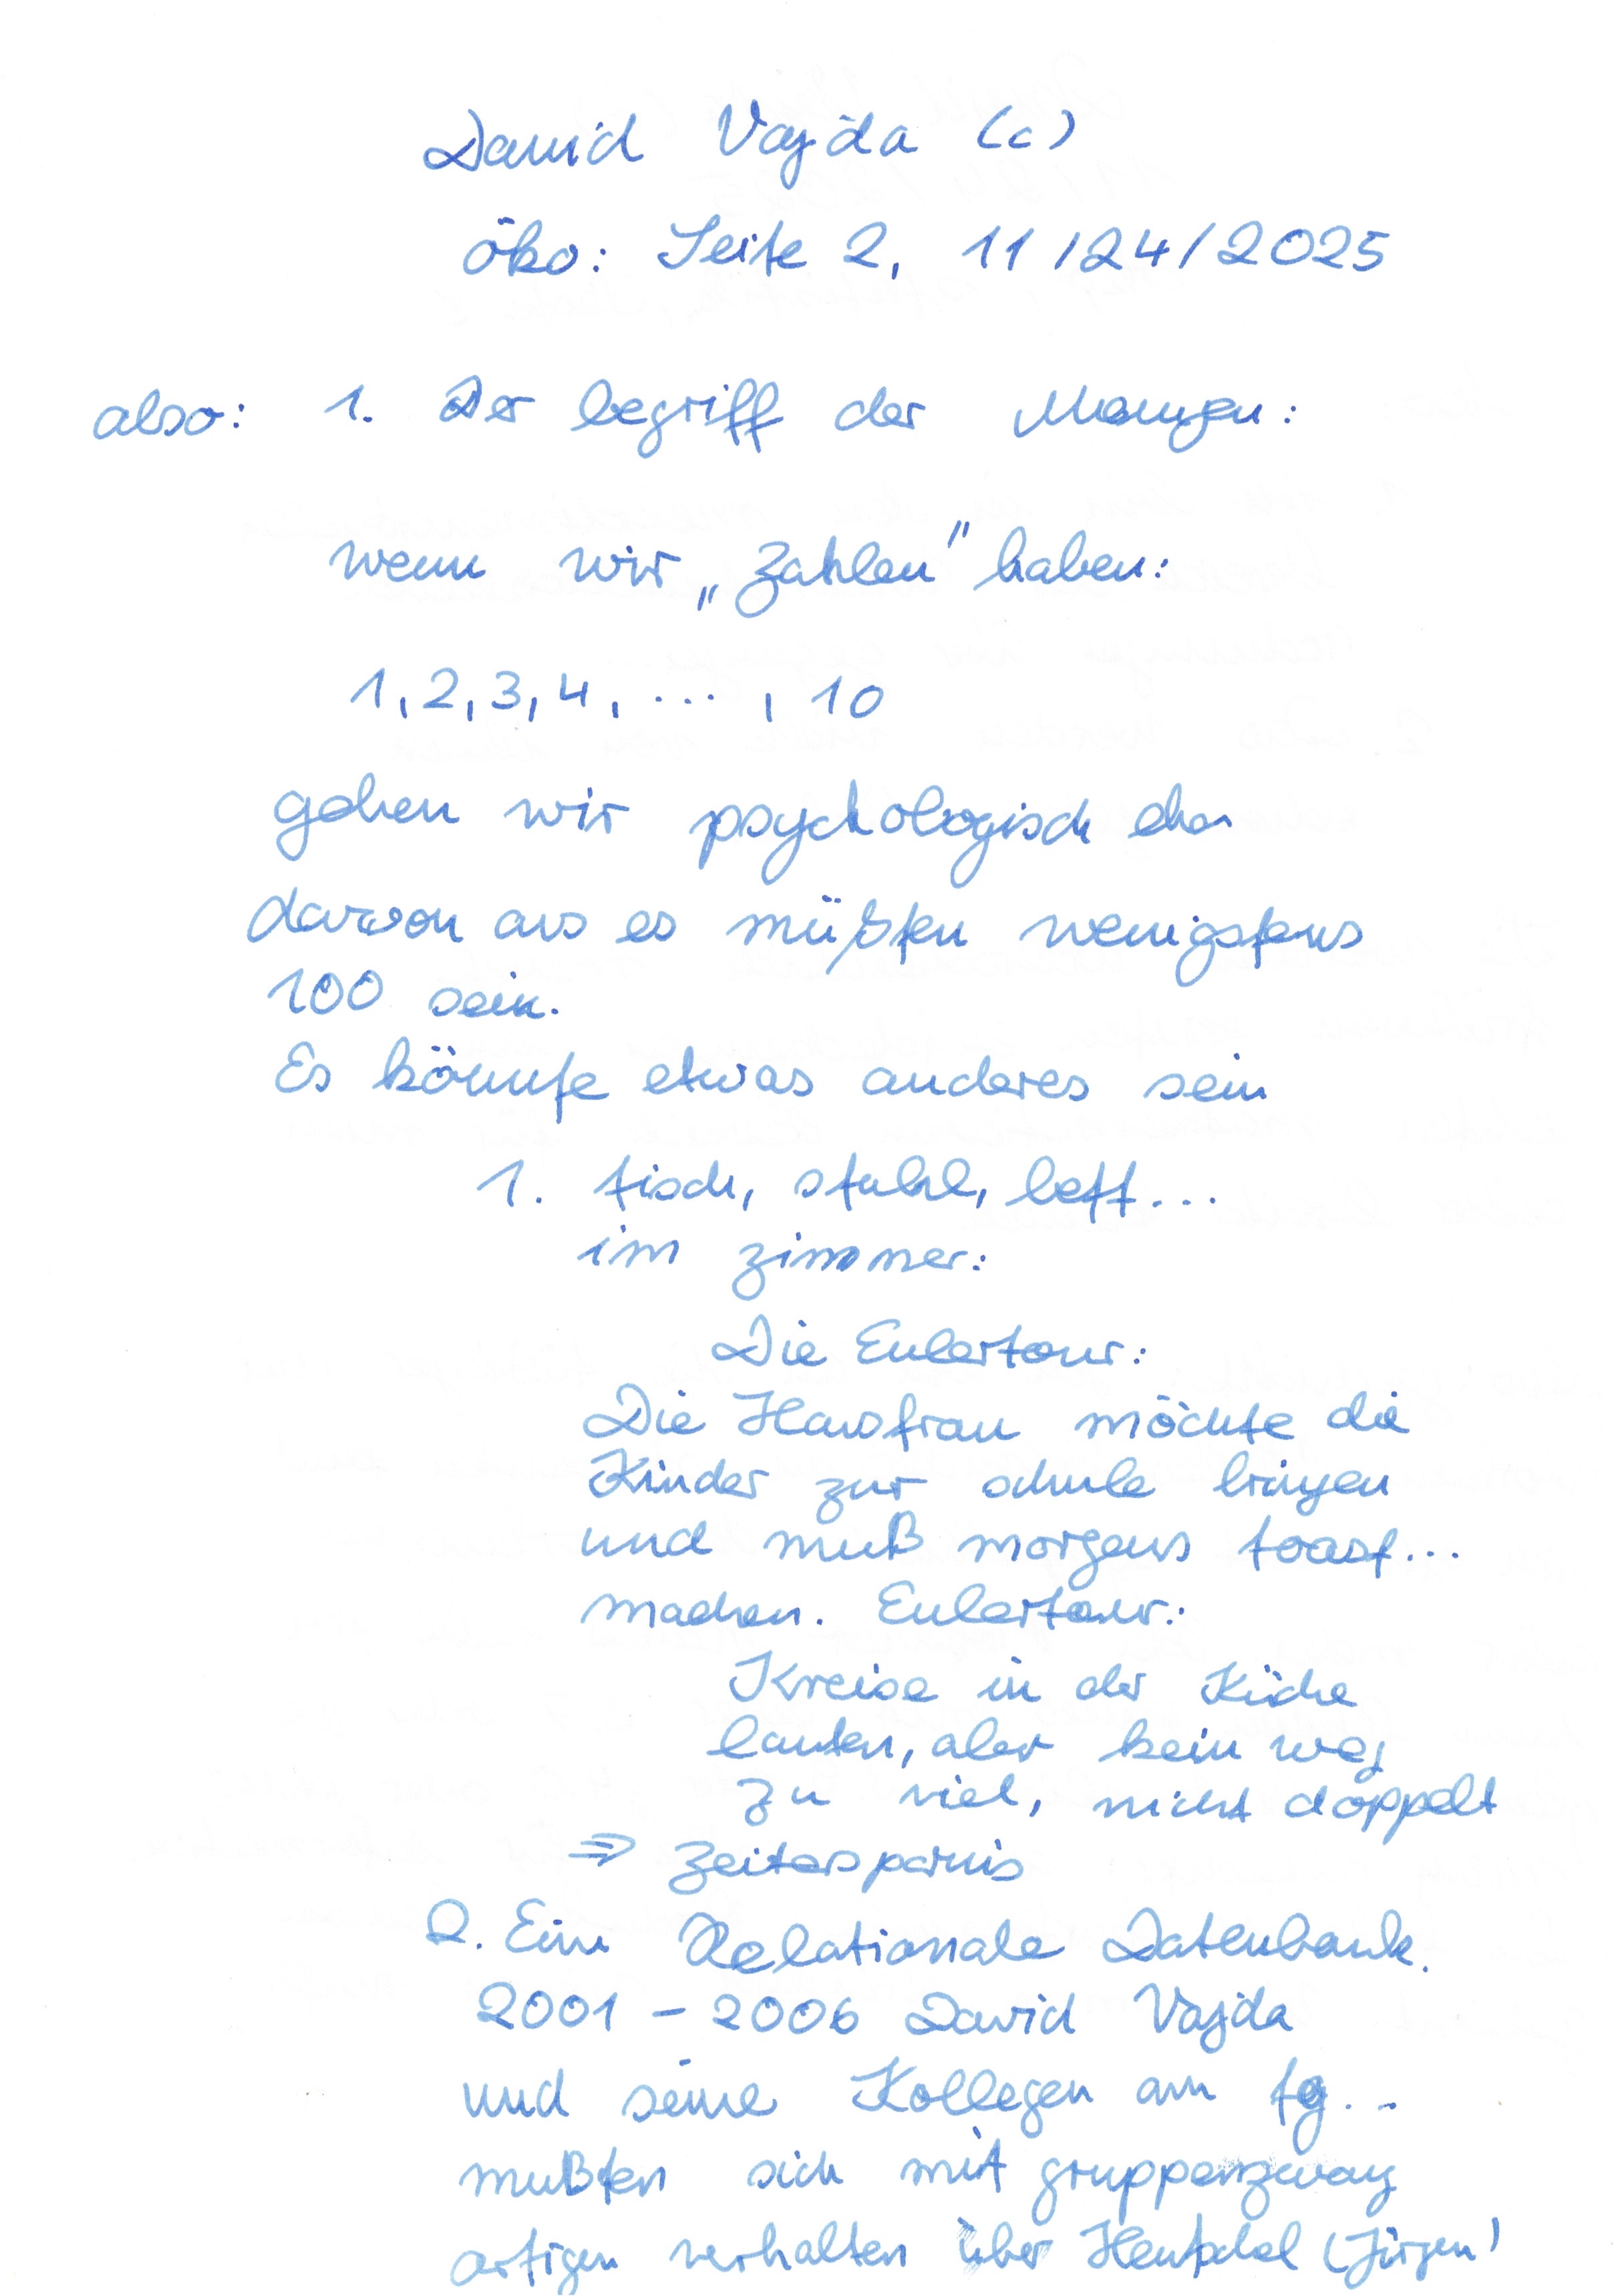 David Vajda (c)
öko: Seite 2, 11/24/2025
also: 1. Der begriff der Mengen:
wenn wir „Zahlen" haben:
1, 2, 3, 4, ... , 10
gehen wir psychologisch eher
davon aus es müßten wenigstens
100 sein.
Es könnte etwas anderes sein
1. tisch, stuhl, bett...
im zimmer:
Die Eulertour:
Die Hausfrau möchte die
Kinder zur schule bringen
und muß morgens toast...
machen. Eulertour:
Kreise in der Küche
laufen, aber kein weg
zu viel, nicht doppelt
⇒ Zeitersparnis
2. Eine Relationale Datenbank.
2001 - 2006 David Vajda
und seine Kollegen am tg...
mußten sich mit gruppenzwang
artigen verhalten über (Jürgen)